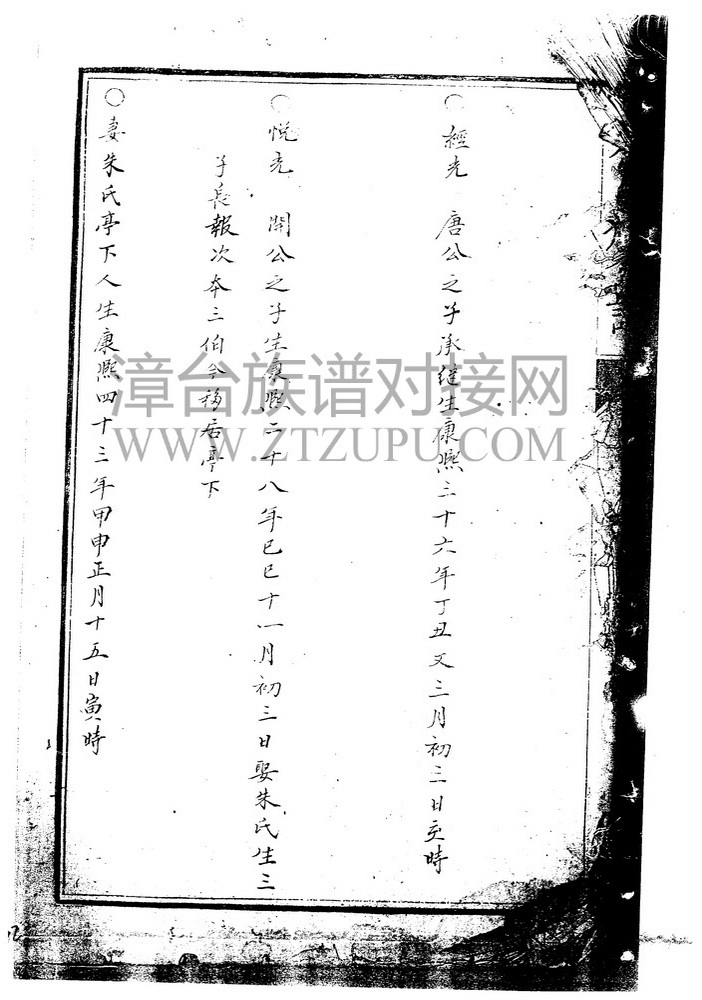 ○經光 唐公之子承继生康熙三十六年丁丑又三月初三日亥時
○悦光 開公之子生康熙二十八年己巳十一月初三日娶朱氏生三
子長報次本三伯 移居亭下
○妻朱氏亭下人生康熙四十三年甲申正月十五日寅時
漳台族谱对接网
WWW.ZTZUPU.COM